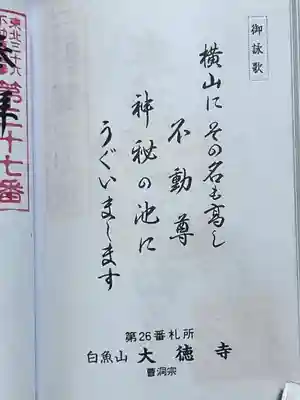 御詠歌
横山に その名も高し
不動尊
神秘の池に
うぐいまします
第26番札所
白魚山 大徳寺
曹洞宗
東北三十六
第二十七番